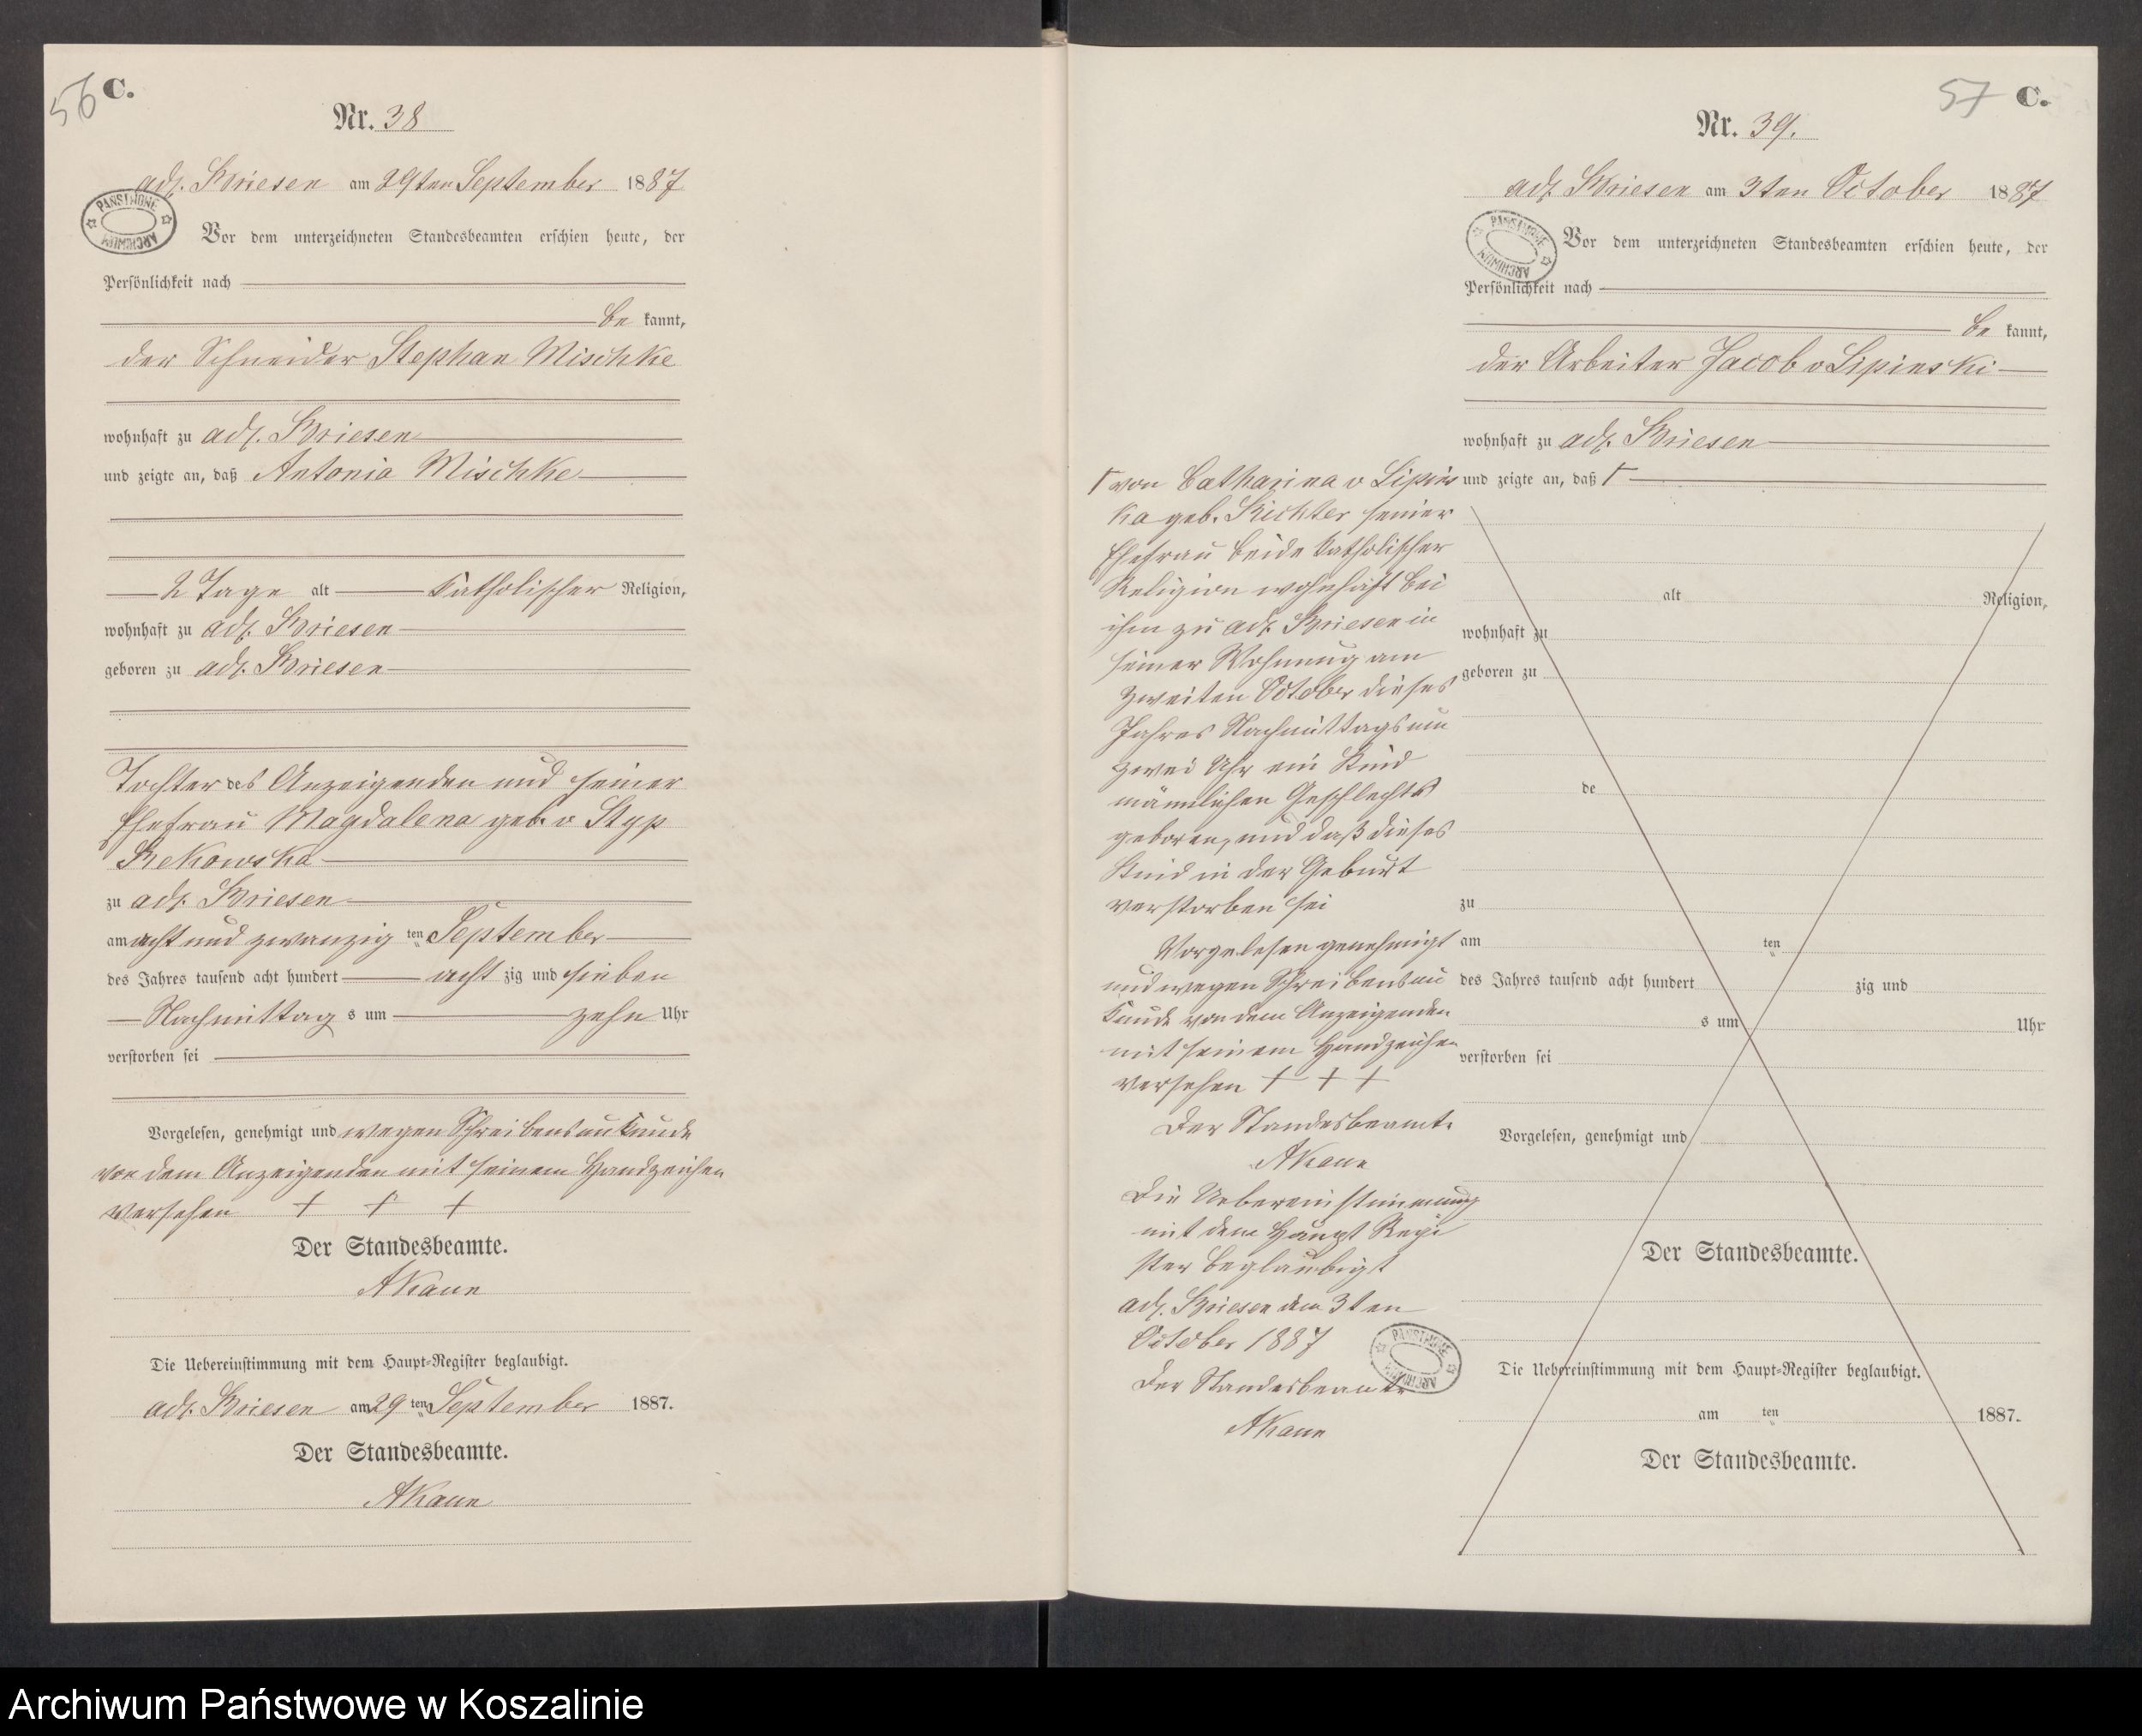 56 C.
Nr. 38
adl. Briesen am 29ten September 1887
PAŃSTWOWE ARCHIWUM
Vor dem unterzeichneten Standesbeamten erschien heute, der
Persönlichkeit nach
be kannt,
der Schneider Stephan Mischke
wohnhaft zu adl. Briesen
und zeigte an, daß Antonia Mischke
2 Tage alt katholischer Religion,
wohnhaft zu adl. Briesen
geboren zu adl. Briesen
Tochter des Anzeigenden und seiner
Ehefrau Magdalena geb. v Styp
Rekowska
zu adl. Briesen
am acht und zwanzig ten September
des Jahres tausend acht hundert acht zig und sieben
Nachmittag s um zehn Uhr
verstorben sei
Vorgelesen, genehmigt und wegen Schreibensunkunde
von dem Anzeigenden mit seinem Handzeichen
versehen + + +
Der Standesbeamte.
AKaun
Die Uebereinstimmung mit dem Haupt-Register beglaubigt.
adl. Briesen am 29 ten September 1887.
Der Standesbeamte.
AKaun
57 C.
Nr. 39.
adl. Briesen am 3ten October 1887
PAŃSTWOWE ARCHIWUM
Vor dem unterzeichneten Standesbeamten erschien heute, der
Persönlichkeit nach
be kannt,
der Arbeiter Jacob v Lipinski
wohnhaft zu adl. Briesen
und zeigte an, daß Γ
Γ von Catharina v Lipins
ka geb. Richter seiner
Ehefrau beide katholischer
Religion wohnhaft bei
ihm zu adl. Briesen in
seiner Wohnung am
zweiten October dieses
Jahres Nachmittags um
zwei Uhr ein Kind
männlichen Geschlechts
geboren, und daß dieses
Kind in der Geburt
verstorben sei
Vorgelesen genehmigt
und wegen Schreibensun
kunde von dem Anzeigenden
mit seinem Handzeichen
versehen + + +
Der Standesbeamte
AKaun
Die Uebereinstimmung
mit dem Haupt Regi
ster beglaubigt
adl. Briesen den 3ten
October 1887
Der Standesbeamte
AKaun
PAŃSTWOWE ARCHIWUM
alt Religion,
wohnhaft zu
geboren zu
de
zu
am ten
des Jahres tausend acht hundert zig und
s um Uhr
verstorben sei
Vorgelesen, genehmigt und
Der Standesbeamte.
Die Uebereinstimmung mit dem Haupt-Register beglaubigt.
am ten 1887.
Der Standesbeamte.
Archiwum Państwowe w Koszalinie